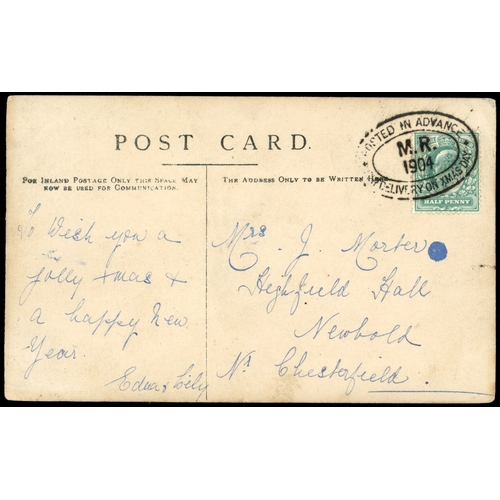 POST CARD.
FOR INLAND POSTAGE ONLY THIS SPACE MAY
NOW BE USED FOR COMMUNICATION.
THE ADDRESS ONLY TO BE WRITTEN
POSTED IN ADVANCE
M.R.
1904
DELIVERY ON XMAS DAY
HALF PENNY
To Wish you a
jolly xmas &
a happy New
Year.
Edna & Lily
Mrs J. Morter
Highfield Hall
Newbold
Nr Chesterfield.